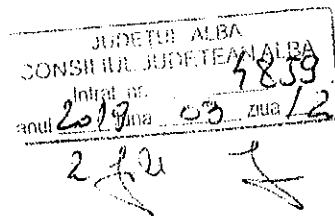 JUDEȚUL ALBA
CONSILIUL JUDEȚEAN ALBA
Intrat nr. 4859
anul 2019 luna 03 ziua 12